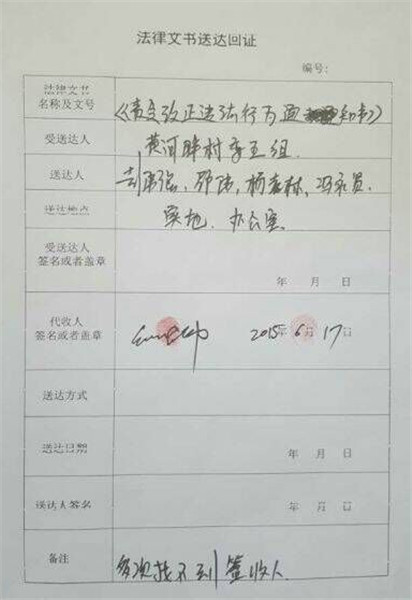 法律文书送达回证
编号:
法律文书
名称及文号
《责令改正违法行为通知书》
受送达人
黄河畔村李五组.
送达人
彭 郭伟, 杨春林, 冯永员.
送达地点
实地、办公室.
受送达人
签名或者盖章
年 月 日
代收人
签名或者盖章
2015年6月17日
送达方式
送达日期
年 月 日
送达人签名
年 月 日
备注
多次找不到签收人.